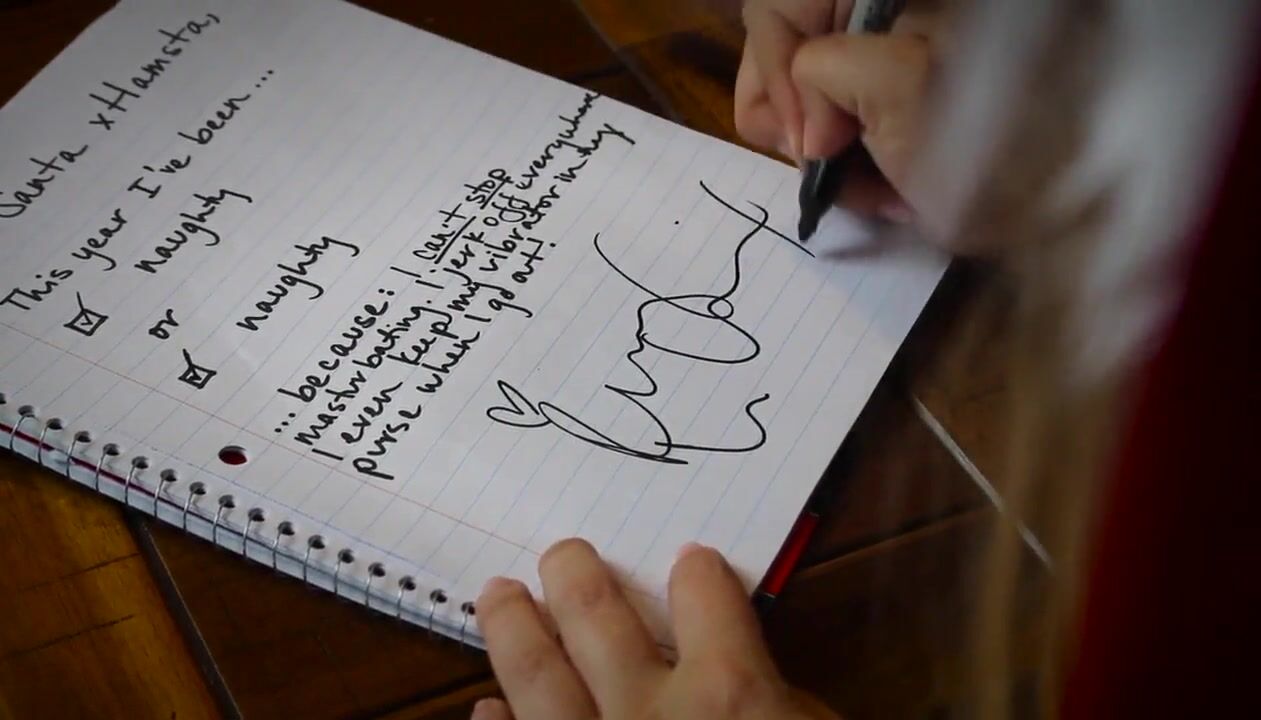 Santa xHamsta,
This year I've been...
☑ naughty
or
☑ naughty
...because: I can't stop
masturbating. I jerk off everywhere
I even keep my vibrator in my
purse when I go out!